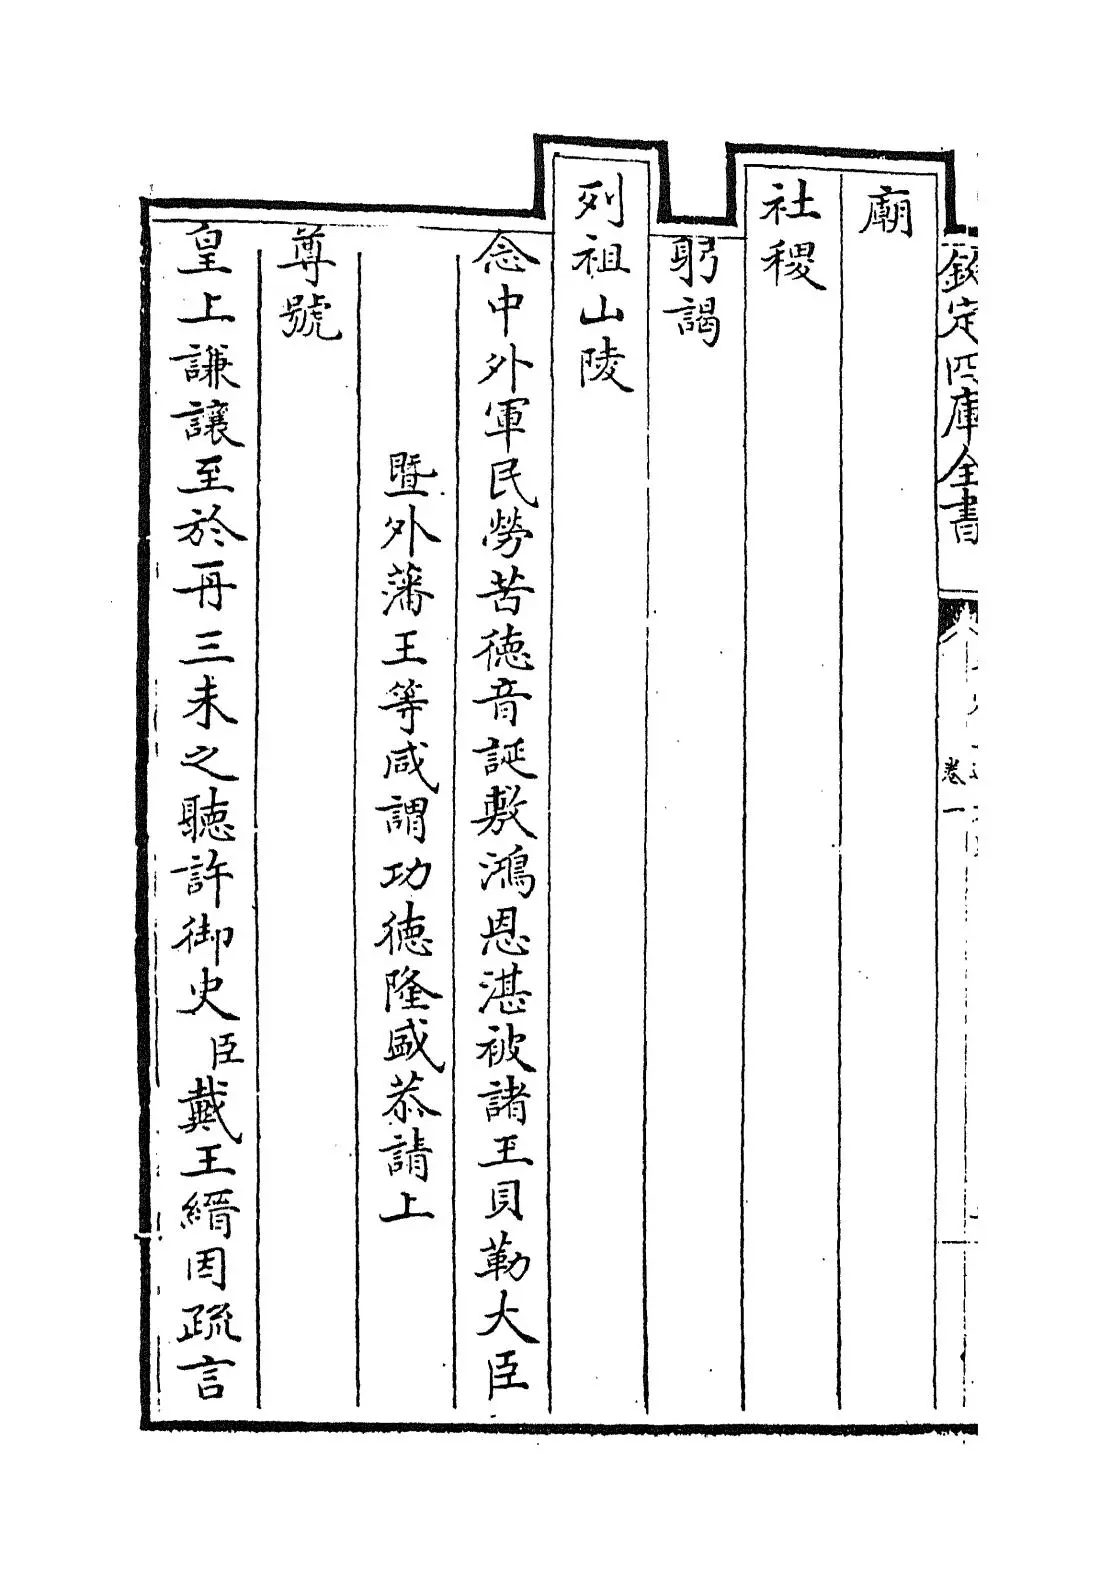 欽定四庫全書
卷一
廟
社稷
躬謁
列祖山陵
念中外軍民勞苦徳音誕敷鴻恩湛被諸王貝勒大臣
暨外藩王等咸謂功徳隆盛恭請上
尊號
皇上謙讓至於再三未之聽許御史臣戴王縉因疏言